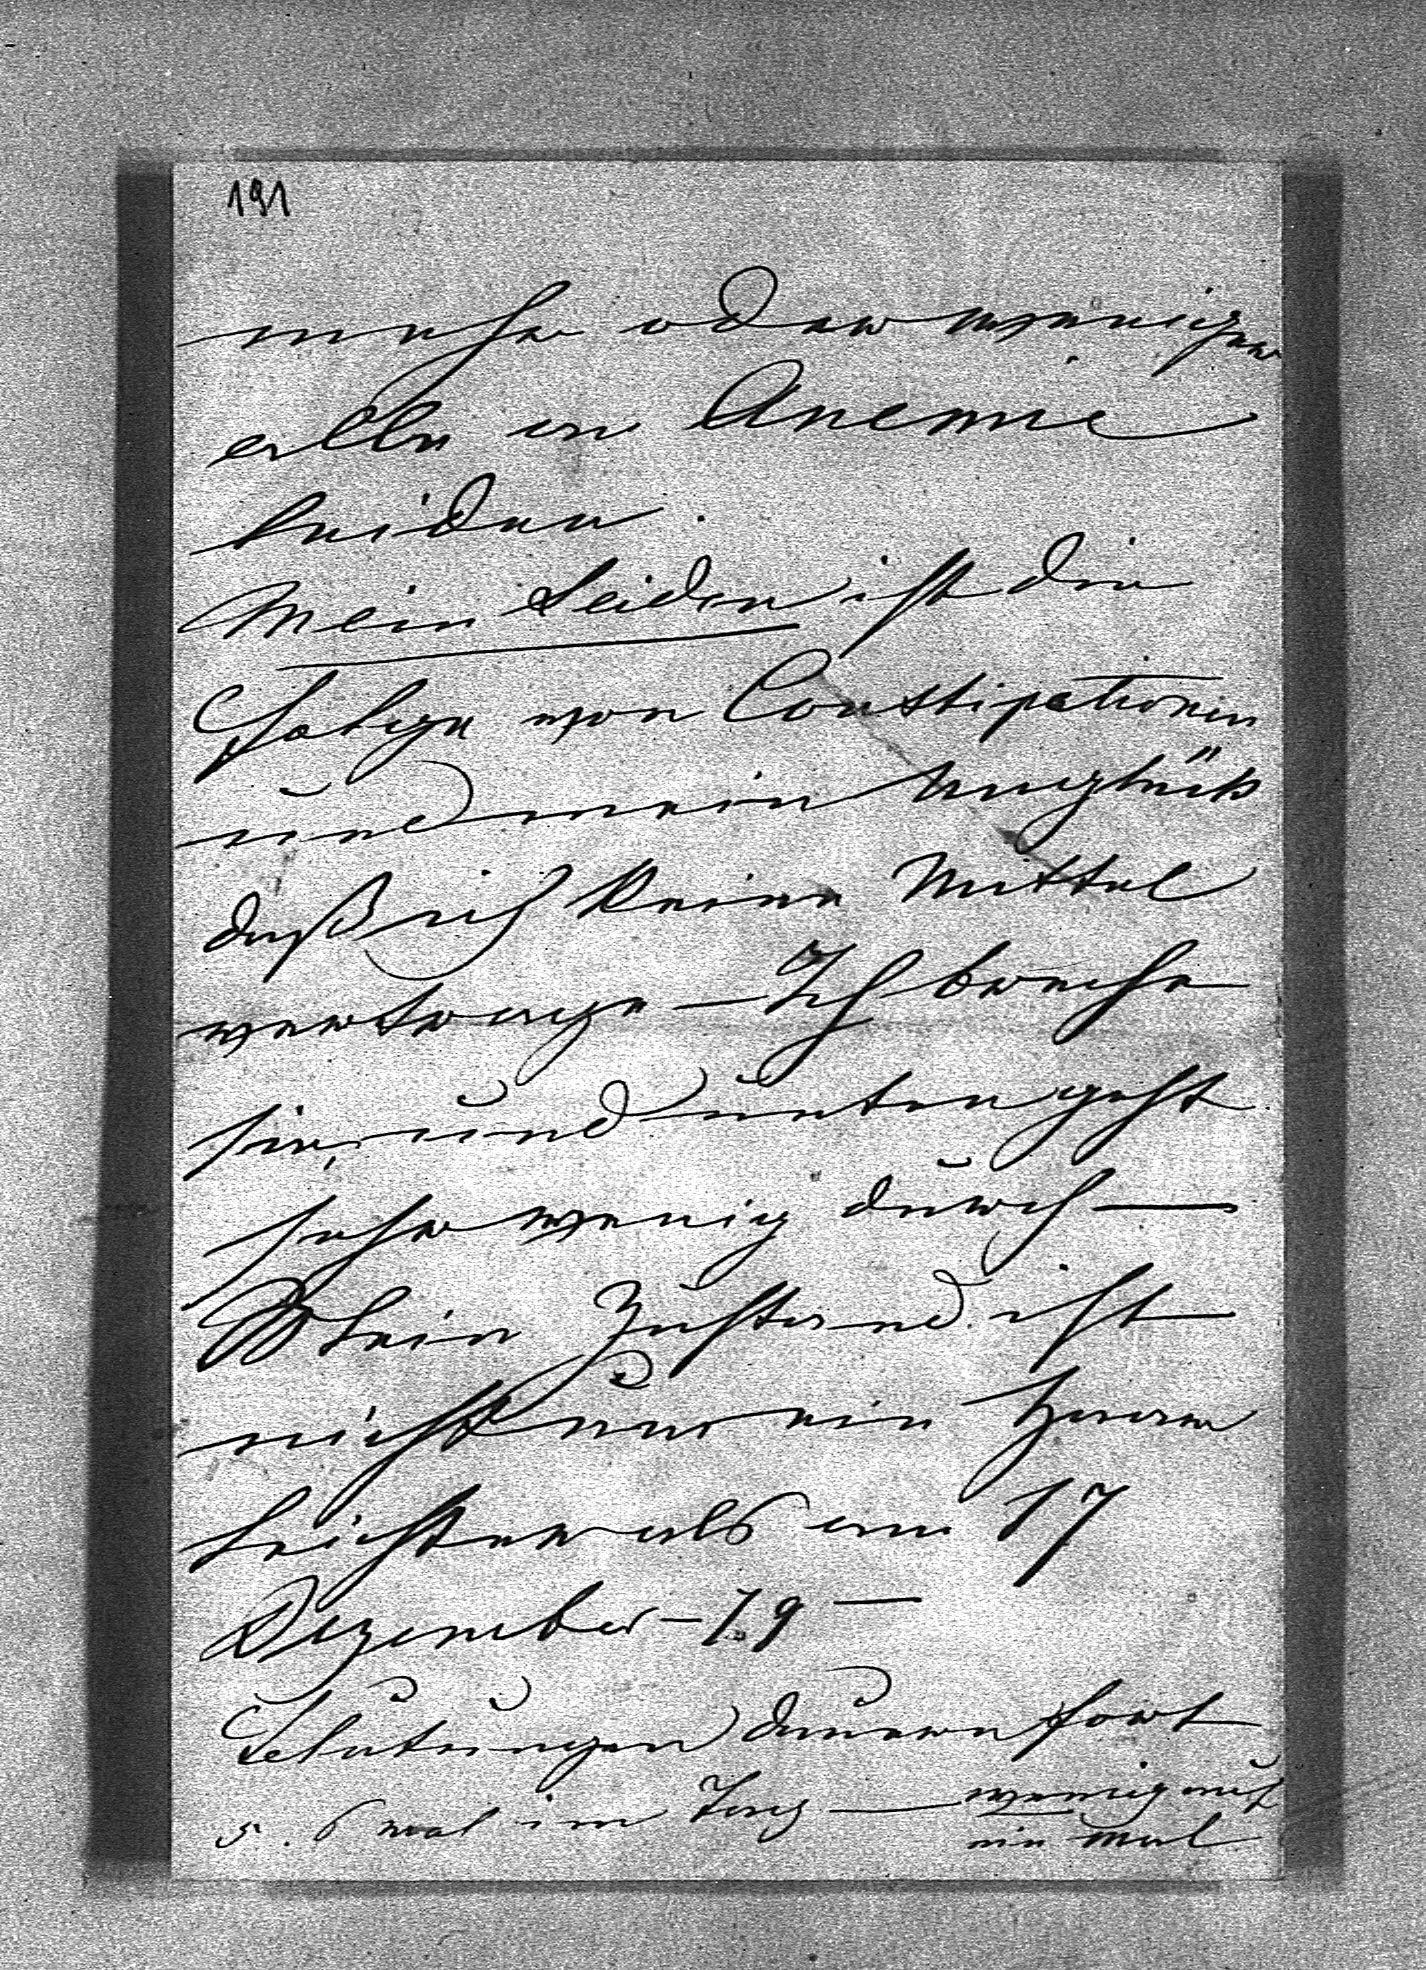 191
mehr oder weniger
alle an Anemie
leiden.
Mein Leiden ist die
Folge von Constipationen
und mein Unglük
daß ich keine Mittel
vertrage — Ich breche
sie, und unten geht
sehr wenig durch —
Mein Zustand ist
nicht um ein Haar
leichter als am 17
Dezember — 79 —
Blutungen dauern fort
5. 6 mal im Tag — wenig auf
ein mal